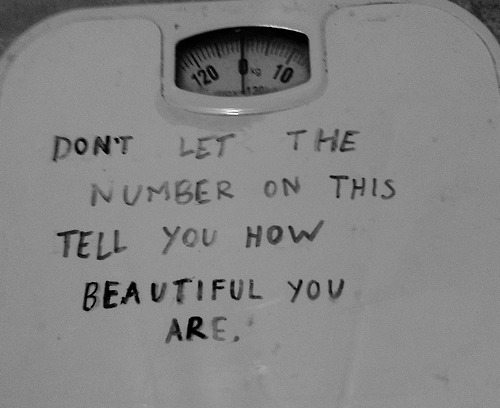 120 0 KG 10
DON'T LET THE
NUMBER ON THIS
TELL YOU HOW
BEAUTIFUL YOU
ARE.